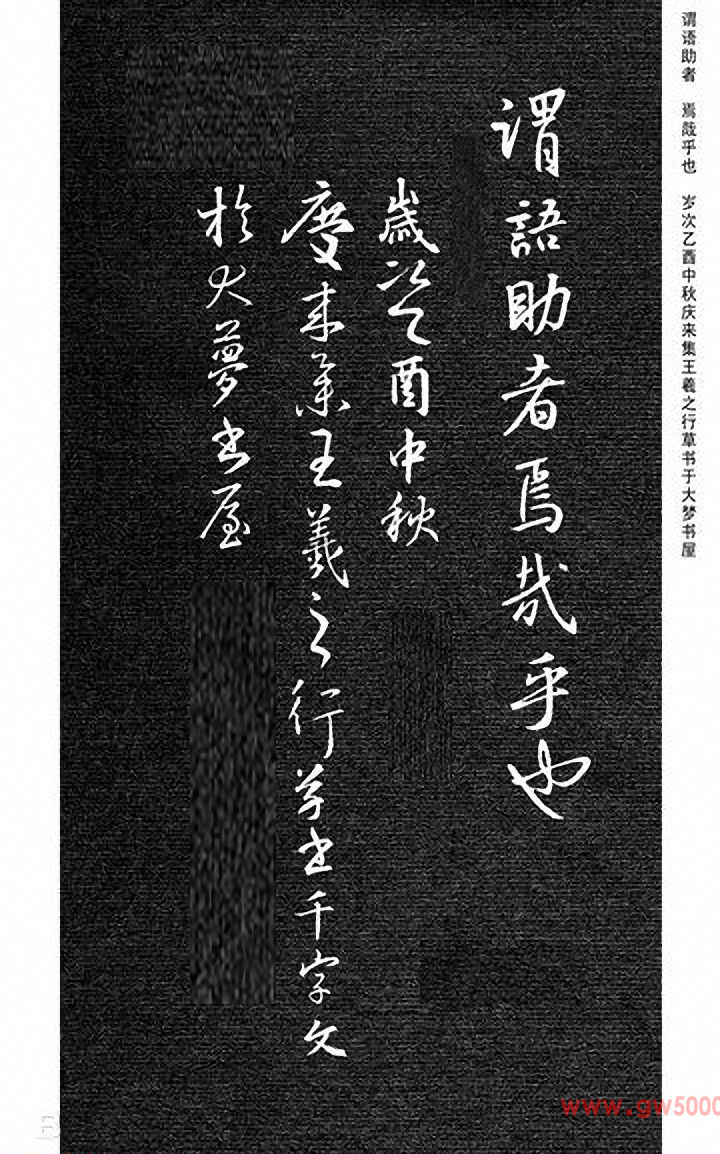 谓语助者 焉哉乎也 岁次乙酉中秋庆来集王羲之行草书于大梦书屋
謂語助者焉哉乎也
歲次乙酉中秋
慶来集王羲之行草书千字文
於大夢书屋
www.gw5000